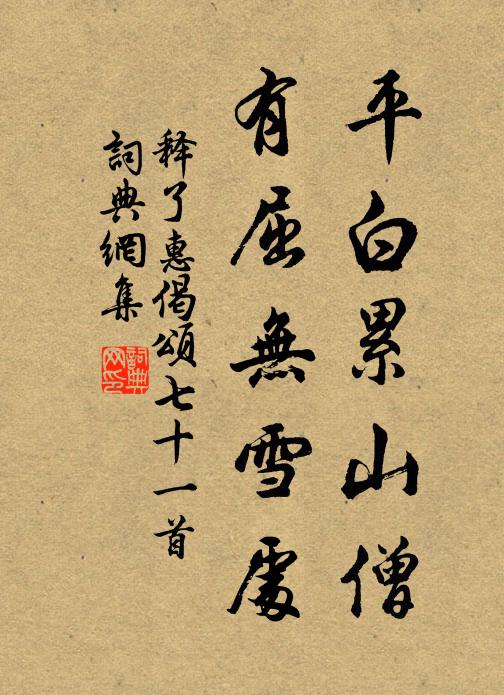 平白累山僧
有屈無雪處
释了惠偈頌七十一首
詞典網集
詞典
网印